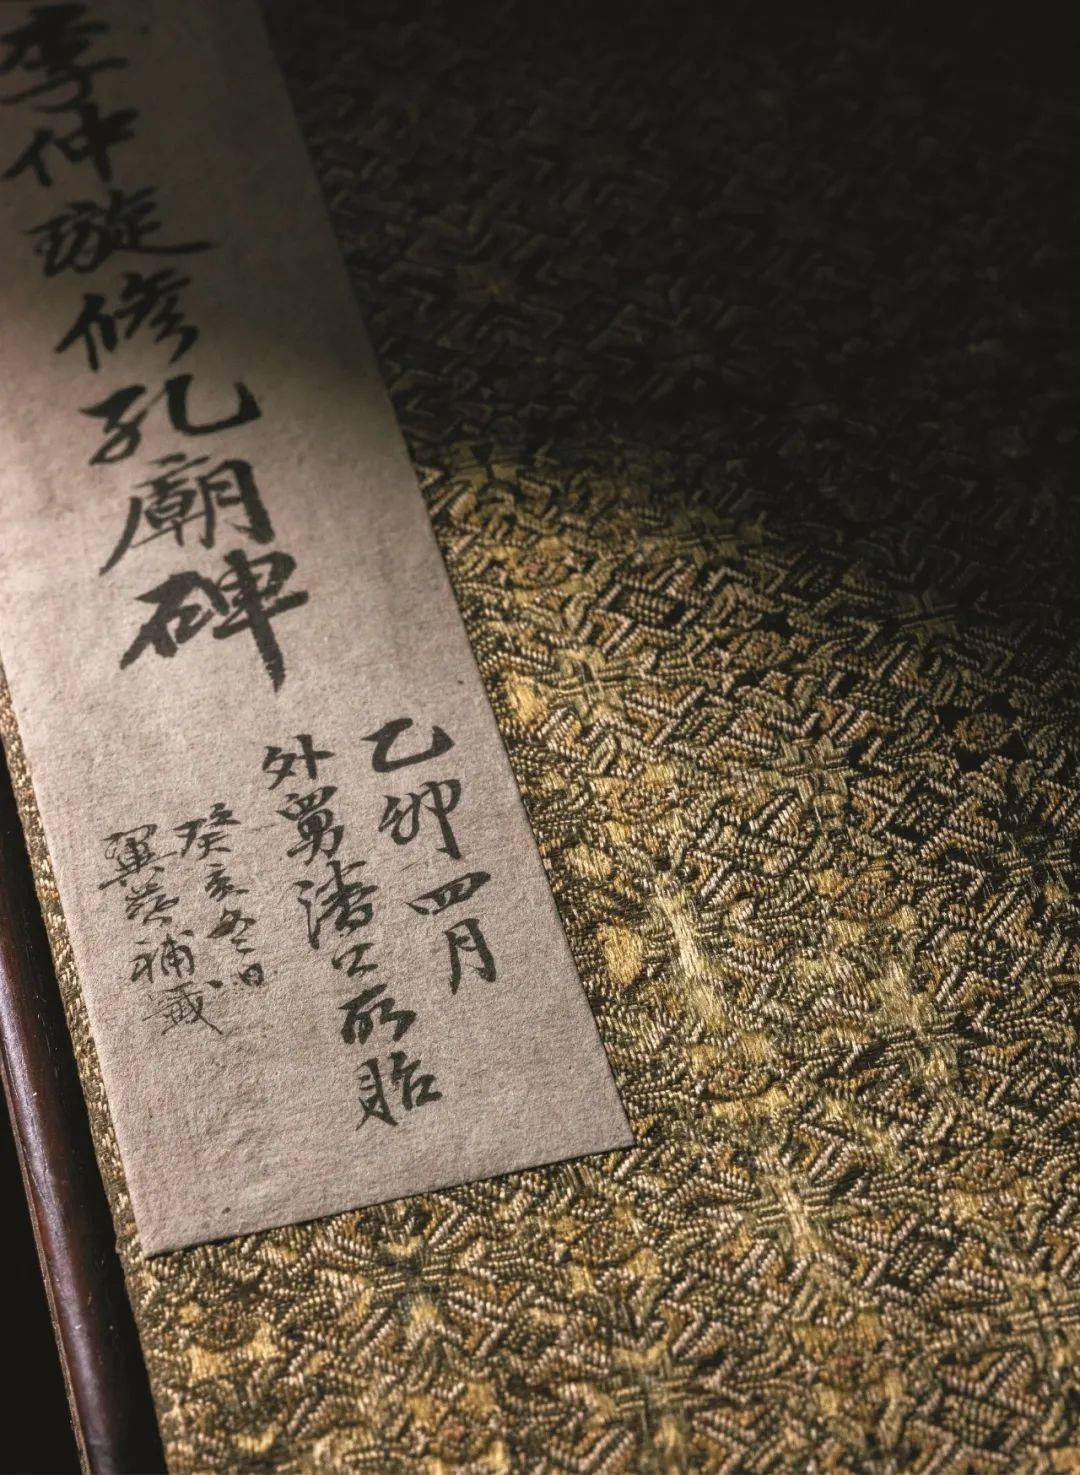 李仲璇修孔廟碑
乙卯四月
外舅潘公所貽
癸亥冬日
翼葊補籤